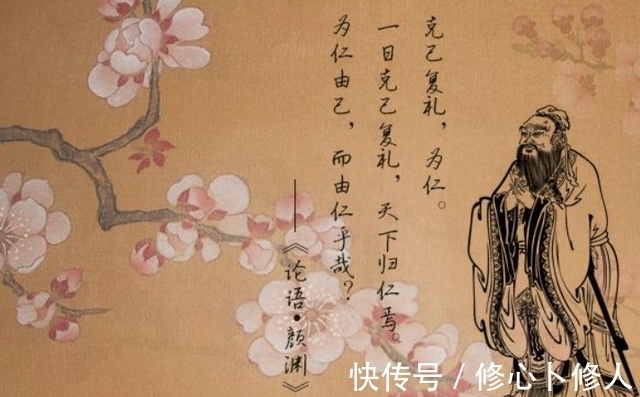 克己复礼，为仁。
一日克己复礼，天下归仁焉。
为仁由己，而由仁乎哉？
——《论语•颜渊》
快传号 / 修心卜修人